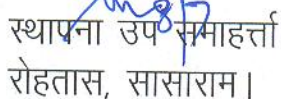 स्थापना उप समाहर्त्ता
रोहतास, सासाराम।